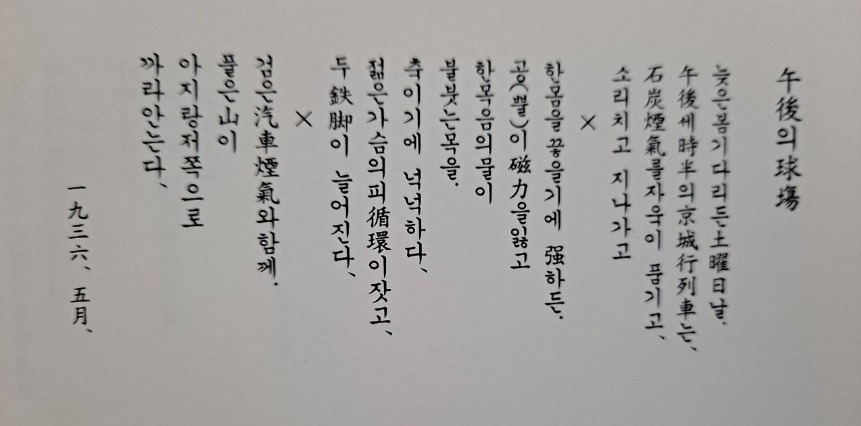 午後의球場
늦은봄기다리든土曜日날.
午後세時半의京城行列車는、
石炭煙氣를자욱이 품기고、
소리치고 지나가고
×
한몸을꿇을기에 强하든.
공(뽈)이磁力을잃고
한목음의물이
불붓는목을.
축이기에 넉넉하다、
젊은가슴의피循環이잣고、
두鉄脚이 늘어진다、
×
검은汽車煙氣와함께.
풀은山이
아지랑저쪽으로
까라안는다、
一九三六、五月、